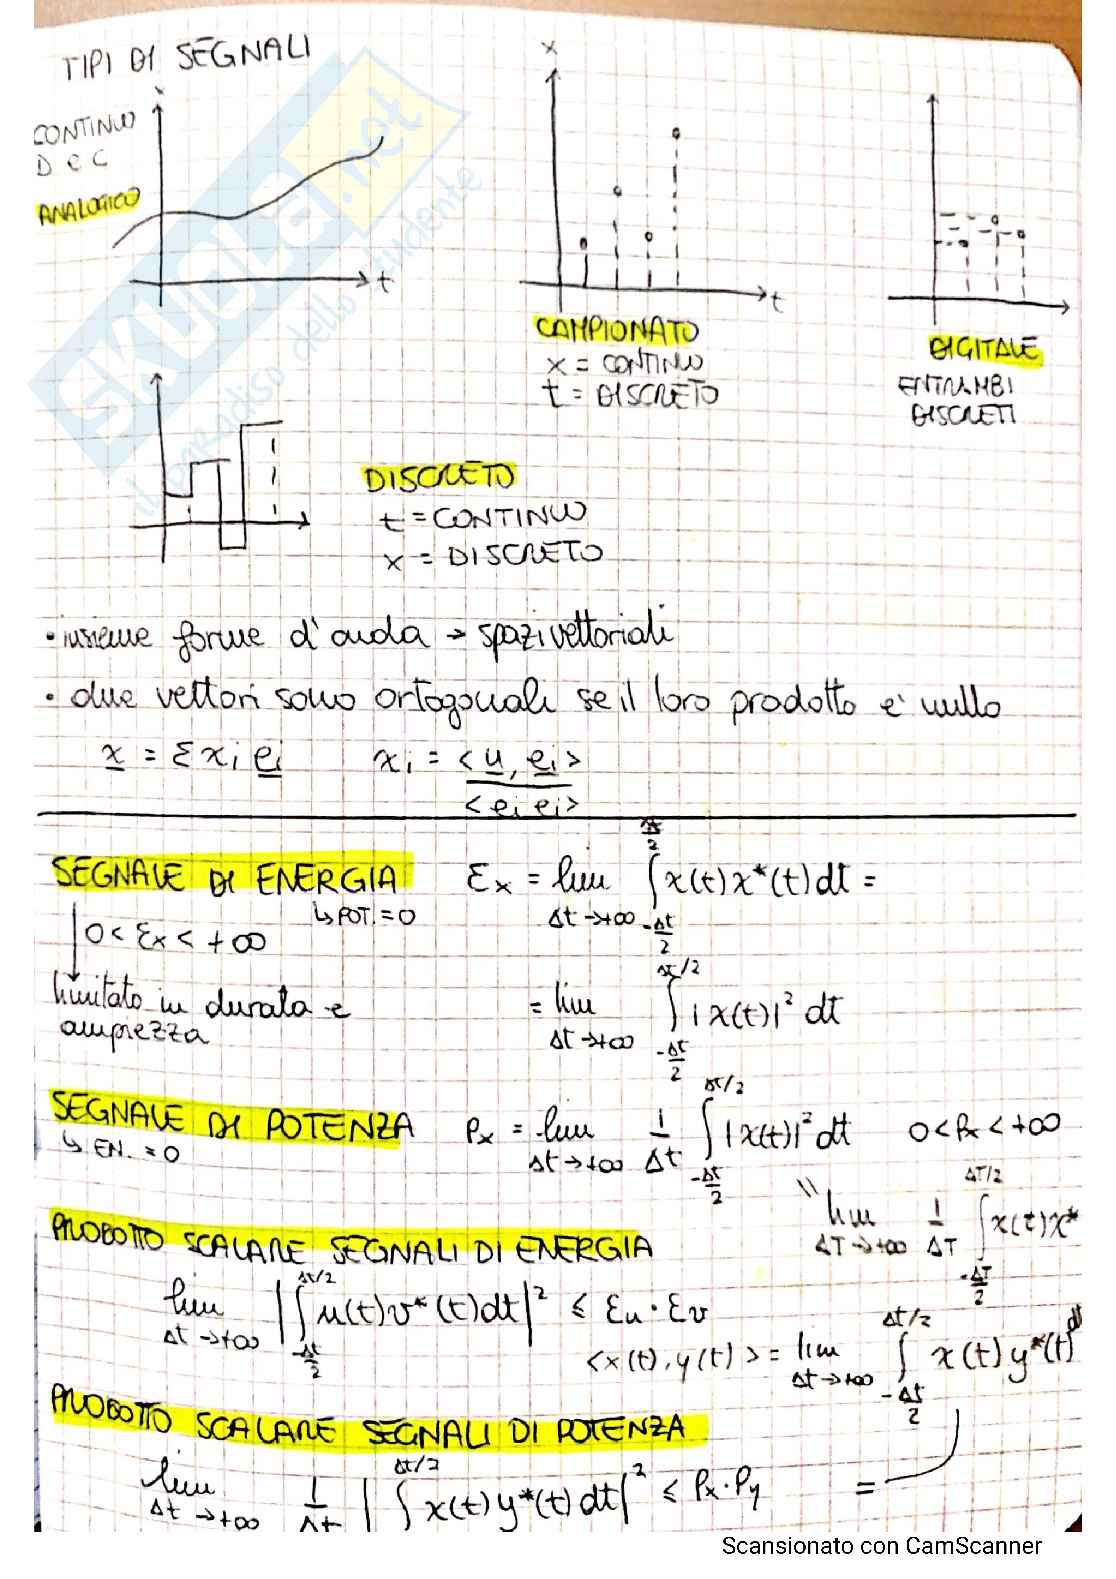 TIPI DI SEGNALI
CONTINUO
D e C
ANALOGICO
t
x
t
CAMPIONATO
x = CONTINUO
t = DISCRETO
DIGITALE
ENTRAMBI
DISCRETI
DISCRETO
t = CONTINUO
x = DISCRETO
SKUOLA.net
il paradiso dello studente
• insieme forme d'onda → spazi vettoriali
• due vettori sono ortogonali se il loro prodotto e' nullo
x = Σ xi ei    xi = <u, ei> / <ei ei>
SEGNALE DI ENERGIA    Ex = lim Δt→+∞ ∫ -Δt/2 Δt/2 x(t)x*(t)dt =
↳ POT. = 0
0 < Ex < +∞
limitato in durata e
ampiezza
= lim Δt→+∞ ∫ -Δt/2 Δt/2 |x(t)|² dt
SEGNALE DI POTENZA    Px = lim Δt→+∞ 1/Δt ∫ -Δt/2 Δt/2 |x(t)|² dt    0 < Px < +∞
↳ EN. = 0
" lim ΔT→+∞ 1/ΔT ∫ -ΔT/2 ΔT/2 x(t)x*
PRODOTTO SCALARE SEGNALI DI ENERGIA
lim Δt→+∞ |∫ -Δt/2 Δt/2 u(t)v*(t)dt|² ≤ Eu · Ev
<x(t), y(t)> = lim Δt→+∞ ∫ -Δt/2 Δt/2 x(t)y*(t) dt
PRODOTTO SCALARE SEGNALI DI POTENZA
lim Δt→+∞ 1/Δt |∫ Δt/2 x(t)y*(t)dt|² ≤ Px · Py    =
Scansionato con CamScanner